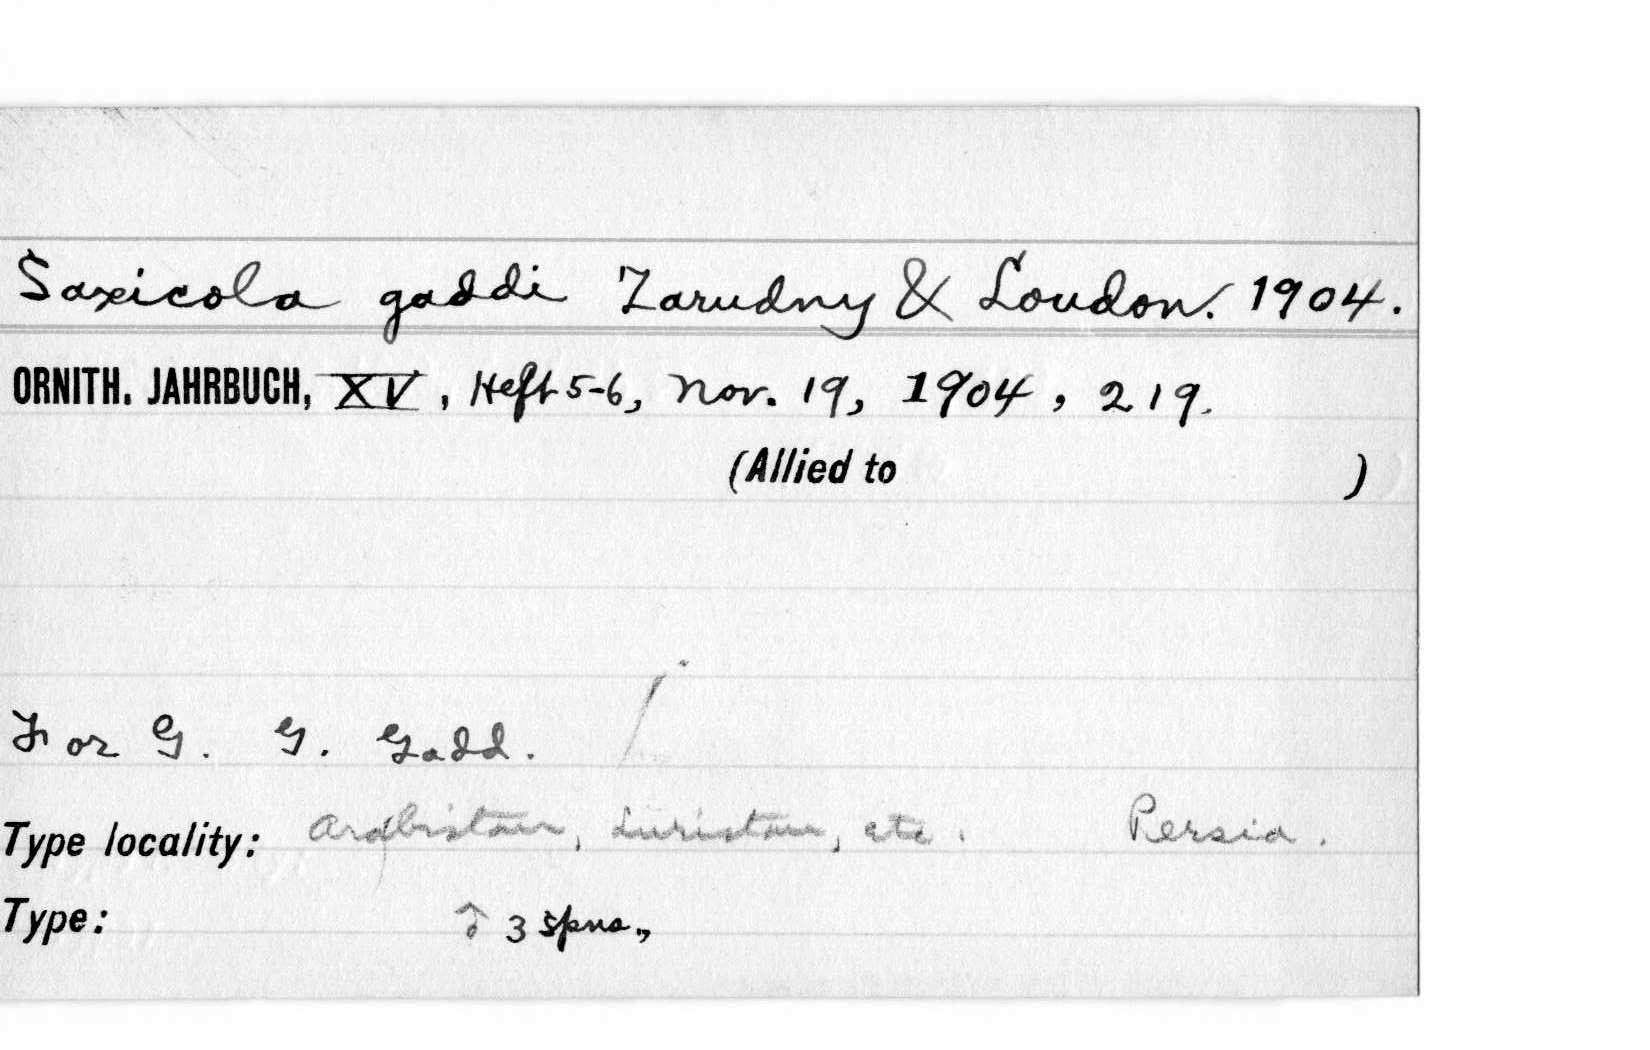 Saxicola gaddi Zarudny & Loudon. 1904.
ORNITH. JAHRBUCH, XV, Heft 5-6, Nov. 19, 1904, 219.
(Allied to )
For G. G. Gadd.
Type locality: Arabistan, Luristan, etc. Persia.
Type: ♂ 3 spns.,